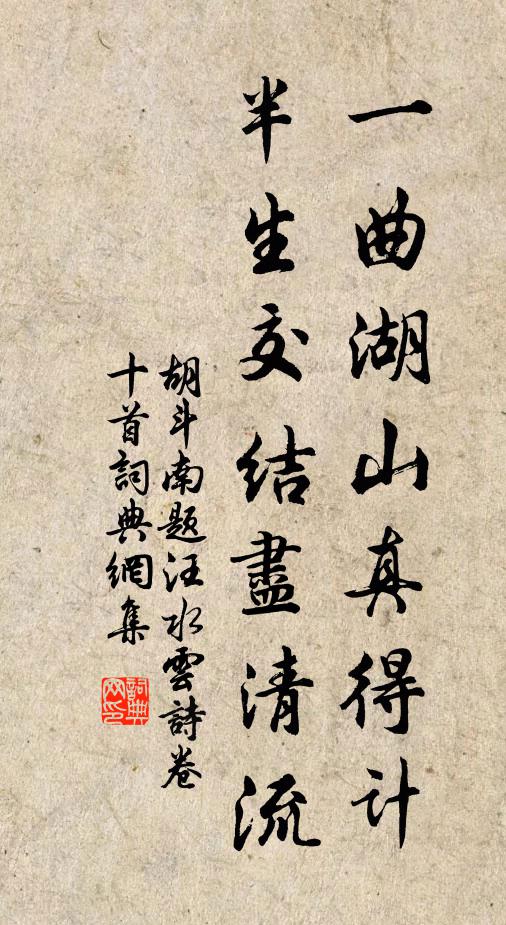 一曲湖山真得計
半生交結盡清流
胡斗南题汪水雲詩卷
十首詞典網集
詞典
网印